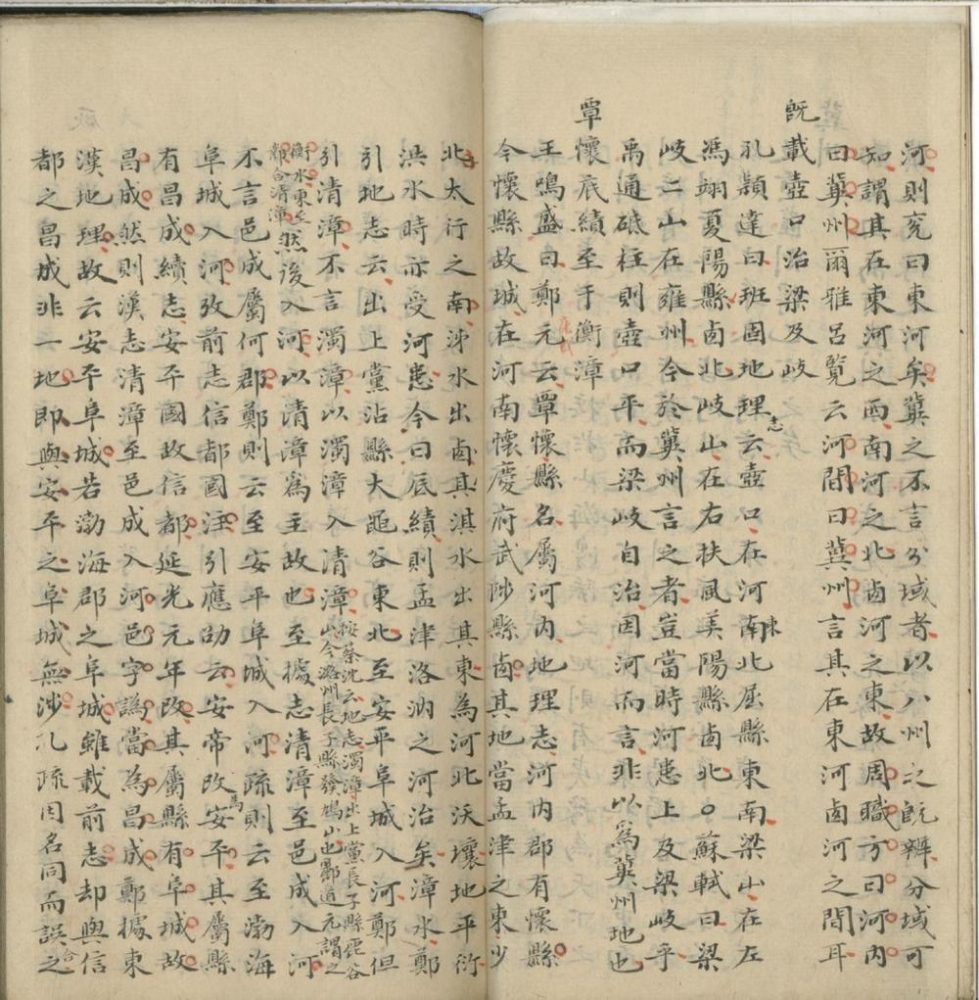 河則兗曰東河矣冀之不言分域者以八州之既辨分域可
知謂其在東河之西南河之北卤河之東故周職方司河內
曰冀州爾雅呂覽云河間曰冀州言其在東河卤河之間耳
既載壺口治梁及岐
孔穎達曰班固地理志云壺口在河南東北屈縣東南梁山在左
馮翊夏陽縣卤北岐山在右扶風美陽縣卤北○蘇軾曰梁
岐二山在雍州今於冀州言之者豈當時河患上及梁岐乎
禹通砥柱則壺口平而梁岐自治因河而言非以為冀州地也
覃懷厎績至于衡漳
王鳴盛曰鄭元云覃懷縣名屬河內地理志河內郡有懷縣
今懷縣故城在河南懷慶府武陟縣卤其地當孟津之東少
北太行之南泲水出卤其淇水出其東為河北沃壤地平衍
洪水時亦受河患今曰厎績則孟津洛汭之河治矣漳水鄭
引地志云出上黨沾縣大黽谷東北至安平阜城入河鄭但
引清漳不言濁漳以濁漳入清漳按蔡沈云地志濁漳出上黨長子縣鹿谷
山今潞州長子縣發鳩山也酈道元謂之
衡水東至
鄴合清漳然後入河以清漳為主故也至據志清漳至邑成入河
不言邑成屬何郡鄭則云至安平阜城入河疏則云至渤海
阜城入河攷前志信都國注引應劭云安帝改安平其屬縣
有昌成續志安平國故信都延光元年改其屬縣有阜城故
昌成然則漢志清漳至邑成入河邑字譌當為昌成鄭據東
漢地理故云安平阜城若渤海郡之阜城雖載前志却與信
都之昌成非一地即與安平之阜城無涉孔疏因名同而誤合之